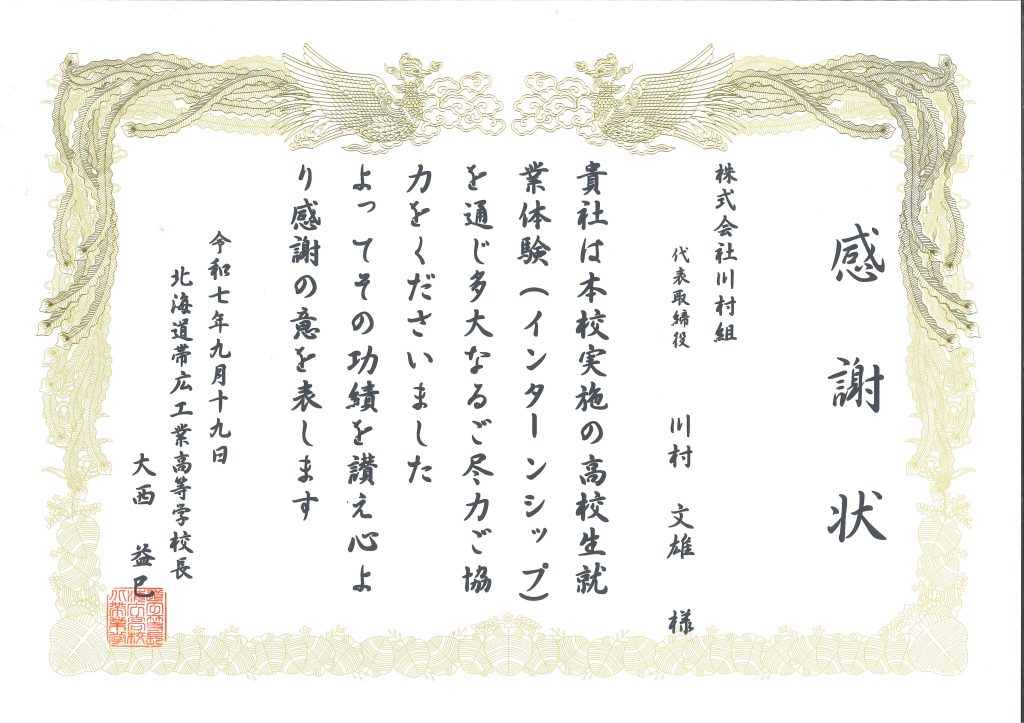 感謝状
株式会社川村組
代表取締役 川村 文雄 様
貴社は本校実施の高校生就
業体験(インターンシップ)
を通じ多大なるご尽力ご協
力をくださいました
よってその功績を讃え心よ
り感謝の意を表します
令和七年九月十九日
北海道帯広工業高等学校長
大西 益巳